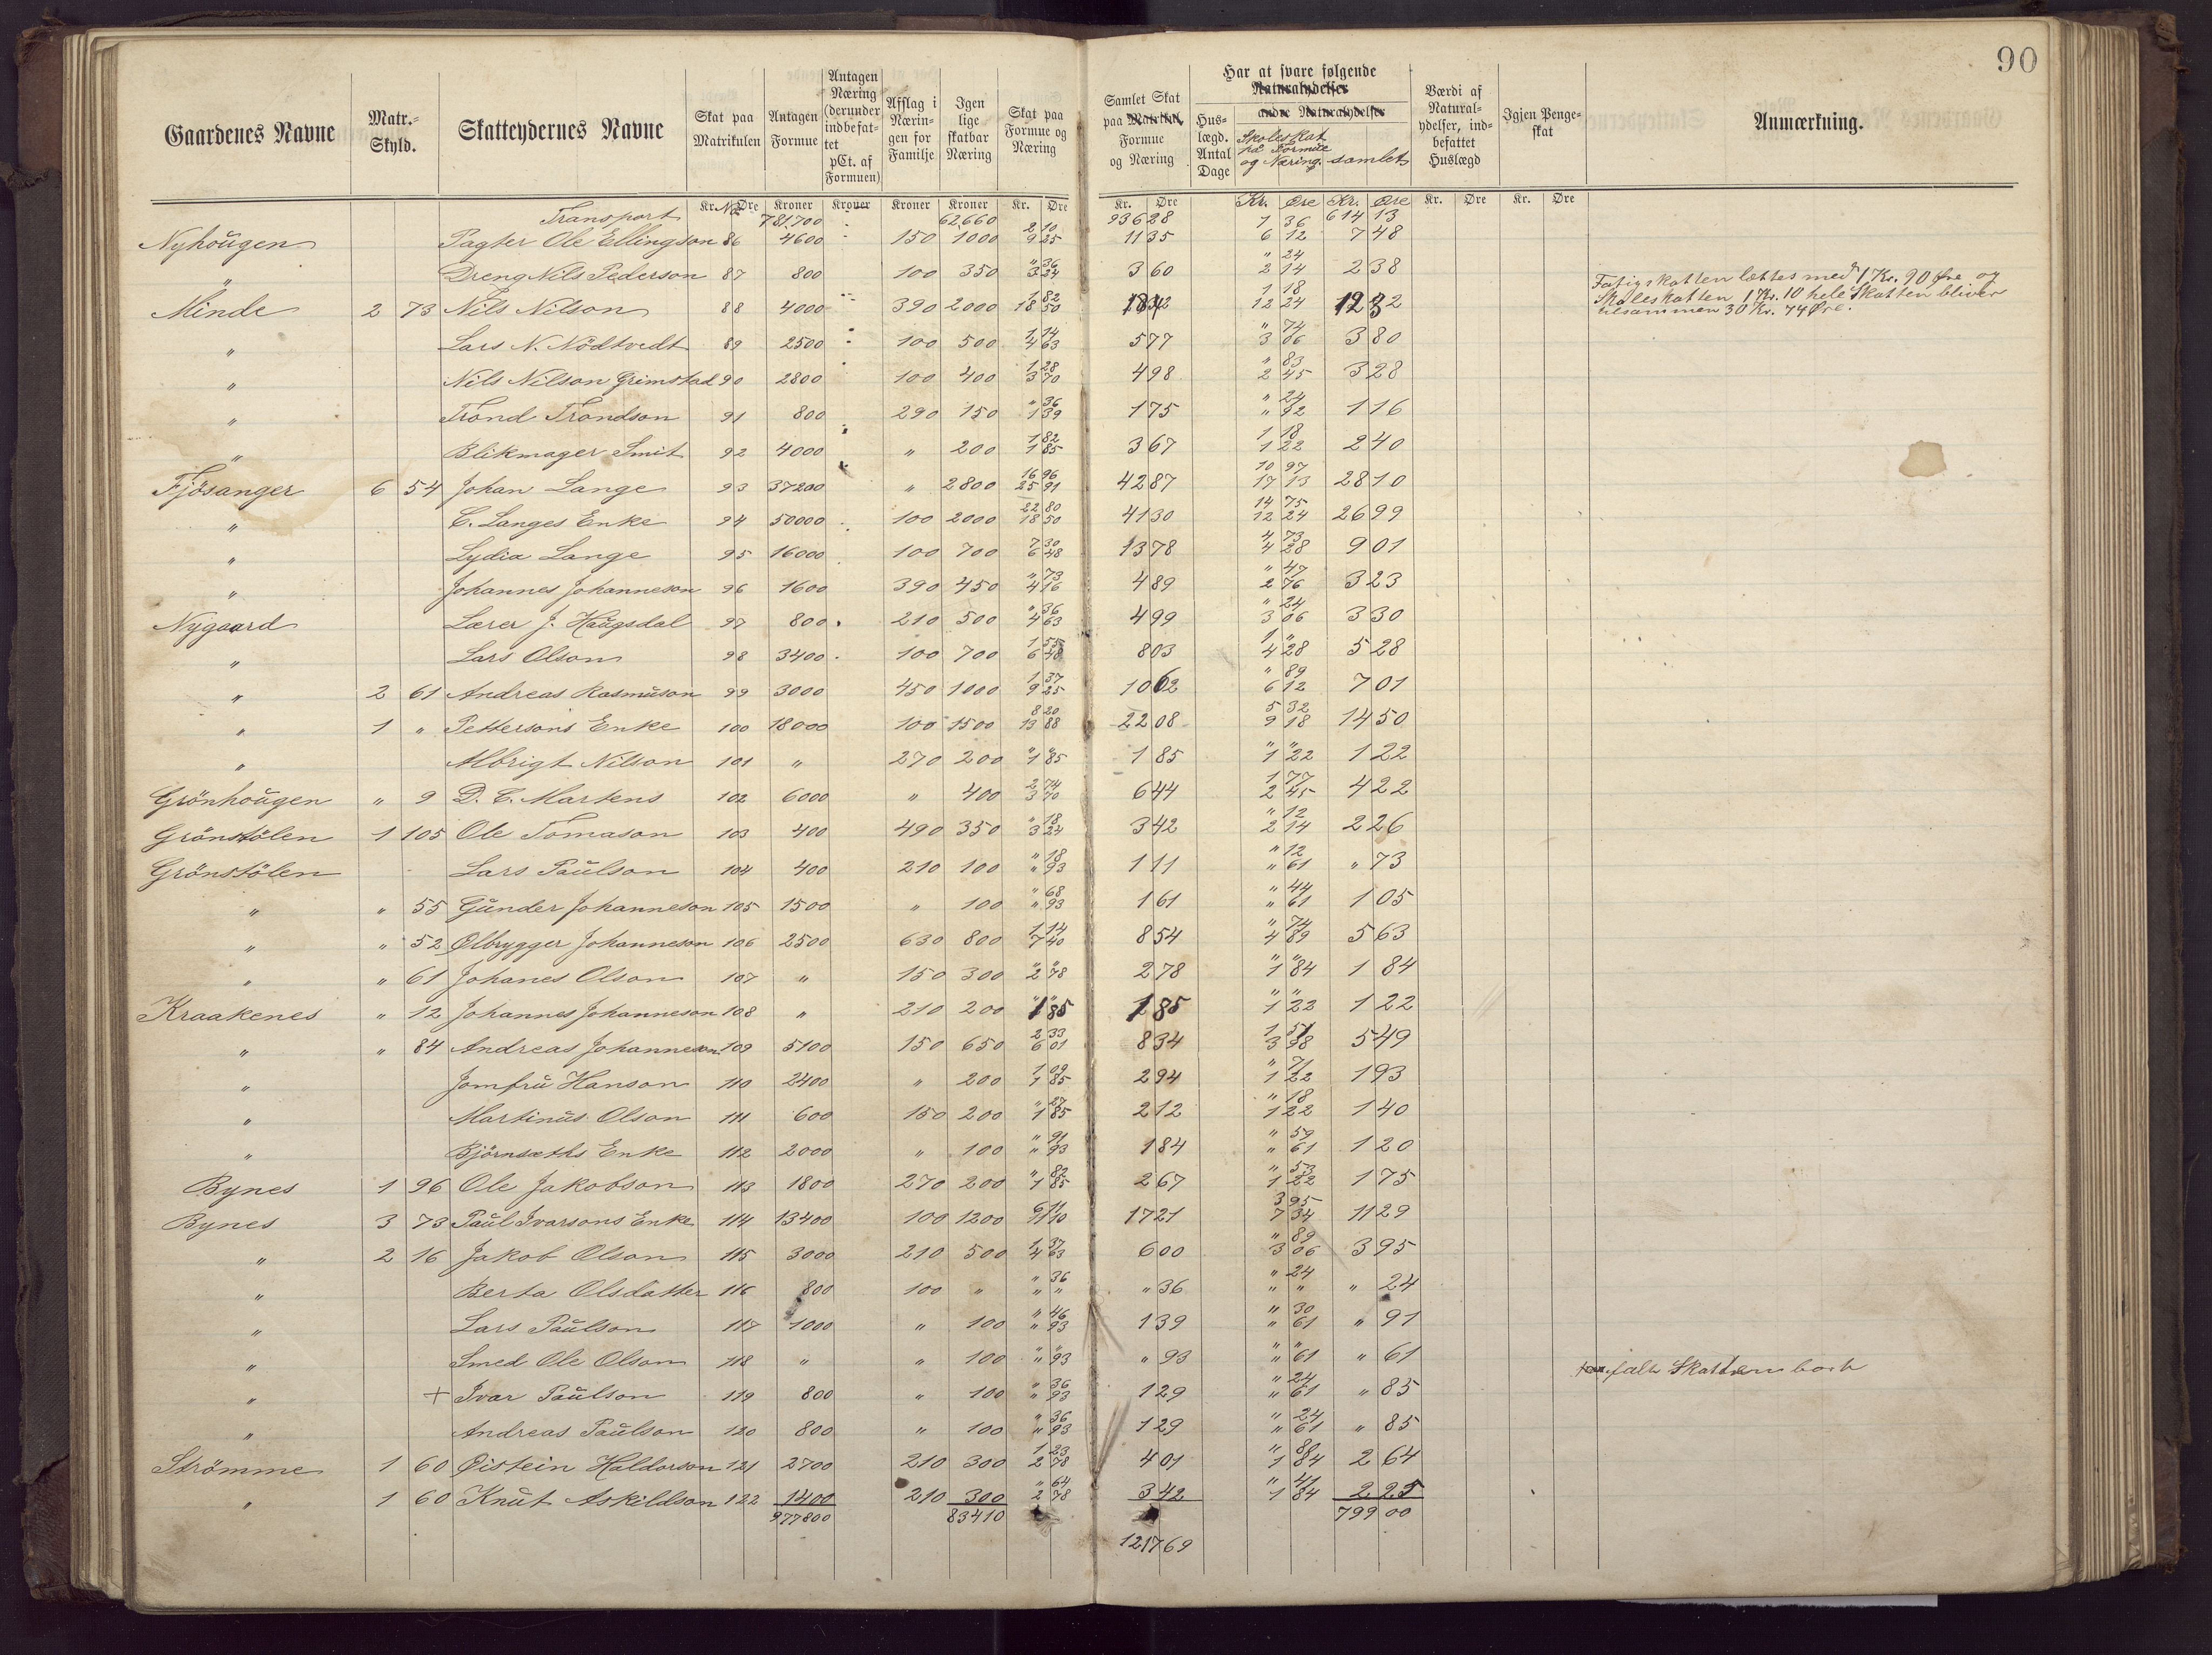 90
Gaardenes Navne | Matr.-Skyld. | Skatteydernes Navne | Skat paa Matrikulen | Antagen Formue | Antagen Næring (derunder indbefattet pCt. af Formuen) | Afslag i Næringen for Familje | Igen lige skatbar Næring | Skat paa Formue og Næring | Samlet Skat paa Matrikul, Formue og Næring | Huslægd. Antal Dage | Har at svare følgende Naturalydelser andre Naturalydelser Skoleskat på Formue og Næring. samlet | Værdi af Naturalydelser, indbefattet Huslægd | Igjen Pengeskat | Anmærkning.
Kr. No Øre | Kroner | Kroner | Kroner | Kroner | Kr. Øre | Kr. Øre | Kr. Øre | Kr. Øre | Kr. Øre | Kr. Øre
Transport 781,700 62,660 936 28 614 13
Nyhougen Pagter Ole Ellingson 86 4600 150 1000 2 10 9 25 11 35 1 36 6 12 7 48
" Dreng Nils Pederson 87 800 100 350 " 36 3 24 3 60 " 24 2 14 2 38
Minde 2 73 Nils Nilson 88 4000 390 2000 1 82 18 50 18 42 1 18 12 24 12 32 Fatigskatten lettes med 1 Kr. 90 Øre og
Skoleskatten 1 Kr. 10 hele Skatten bliver
tilsammen 30 Kr. 74 Øre.
" Lars N. Nödtvedt 89 2500 100 500 1 14 4 63 5 77 " 74 3 06 3 80
" Nils Nilson Grimstad 90 2800 100 400 1 28 3 70 4 98 " 83 2 45 3 28
" Trond Trondson 91 800 290 150 " 36 1 39 1 75 " 24 " 92 1 16
" Blikmager Smit 92 4000 " 200 1 82 1 85 3 67 1 18 1 22 2 40
Fjösanger 6 54 Johan Lange 93 37200 " 2800 16 96 25 91 42 87 10 97 17 13 28 10
" C. Langes Enke 94 50000 100 2000 22 80 18 50 41 30 14 75 12 24 26 99
" Lydia Lange 95 16000 100 700 7 30 6 48 13 78 4 73 4 28 9 01
" Johannes Johanneson 96 1600 390 450 " 73 4 16 4 89 " 47 2 76 3 23
Nygaard Lærer J. Haugsdal 97 800 210 500 " 36 4 63 4 99 " 24 3 06 3 30
" Lars Olson 98 3400 100 700 1 55 6 48 8 03 1 " 4 28 5 28
" 2 61 Andreas Rasmuson 99 3000 450 1000 1 37 9 25 10 62 " 89 6 12 7 01
" 1 " Pettersons Enke 100 18000 100 1500 8 20 13 88 22 08 5 32 9 18 14 50
" Albrigt Nilson 101 " 270 200 " " 1 85 1 85 " " 1 22 1 22
Grönhougen " 9 D. C. Martens 102 6000 " 400 2 74 3 70 6 44 1 77 2 45 4 22
Grönstölen 1 105 Ole Tomason 103 400 490 350 " 18 3 24 3 42 " 12 2 14 2 26
Grönstölen Lars Paulson 104 400 210 100 " 18 " 93 1 11 " 12 " 61 " 73
" " 55 Gunder Johanneson 105 1500 " 100 " 68 " 93 1 61 " 44 " 61 1 05
" " 52 Ølbrygger Johanneson 106 2500 630 800 1 14 7 40 8 54 " 74 4 89 5 63
" " 61 Johanes Olson 107 " 150 300 " " 2 78 2 78 " " 1 84 1 84
Kraakenes " 12 Johannes Johanneson 108 " 210 200 " " 1 85 1 85 " " 1 22 1 22
" " 84 Andreas Johanneson 109 5100 150 650 2 33 6 01 8 34 1 51 3 98 5 49
" Jomfru Hanson 110 2400 " 200 1 09 1 85 2 94 " 71 1 22 1 93
" Martinus Olson 111 600 150 200 " 27 1 85 2 12 " 18 1 22 1 40
" Björnsæths Enke 112 2000 " 100 " 91 " 93 1 84 " 59 " 61 1 20
Bynes 1 96 Ole Jakobson 113 1800 270 200 " 82 1 85 2 67 " 53 1 22 1 75
Bynes 3 73 Paul Ivarsons Enke 114 13400 100 1200 6 11 11 10 17 21 3 95 7 34 11 29
" 2 16 Jakob Olson 115 3000 210 500 1 37 4 63 6 00 " 89 3 06 3 95
" Berta Olsdatter 116 800 100 " " 36 " " " 36 " 24 " " " 24
" Lars Paulson 117 1000 " 100 " 46 " 93 1 39 " 30 " 61 " 91
" Smed Ole Olson 118 " " 100 " " " 93 " 93 " " " 61 " 61
" + Ivar Paulson 119 800 " 100 " 36 " 93 1 29 " 24 " 61 " 85 falder Skatten bort
" Andreas Paulson 120 800 " 100 " 36 " 93 1 29 " 24 " 61 " 85
Strömme 1 60 Øistein Haldorson 121 2700 210 300 1 23 2 78 4 01 " 80 1 84 2 64
" 1 60 Knut Askildson 122 1400 210 300 " 64 2 78 3 42 " 41 1 84 2 25
977800 83410 799 00
1217 69